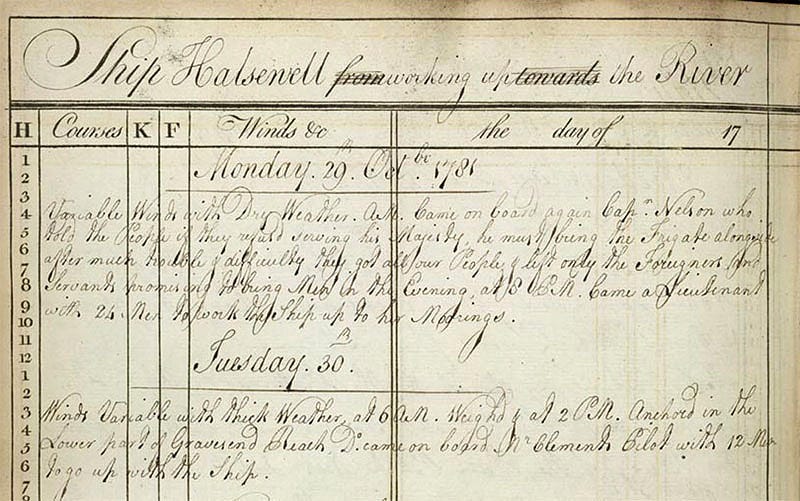 Ship Halsewell from working up towards the River
H Courses K F Winds &c the day of 17
Monday. 29th. Octbr. 1781
Variable Winds with Dry Weather. A.M. Came on board again Capn. Nelson who
told the People if they refusd serving his Majesty, he must bring the Frigate alongside
after much trouble & difficulty they got all our People & left only the Foreigners, and
Servants promising to bring Men in the Evening, at 8 P.M. Came a Lieutenant
with 24 Men to work the Ship up to her Moorings.
Tuesday. 30th.
Winds Variable with thick Weather, at 6 A.M. Weighd & at 2 P.M. Anchord in the
Lower part of Gravesend Reach, Do. came on board Mr Clements Pilot with 12 Men
to go up with the Ship.
1
2
3
4
5
6
7
8
9
10
11
12
1
2
3
4
5
6
7
8